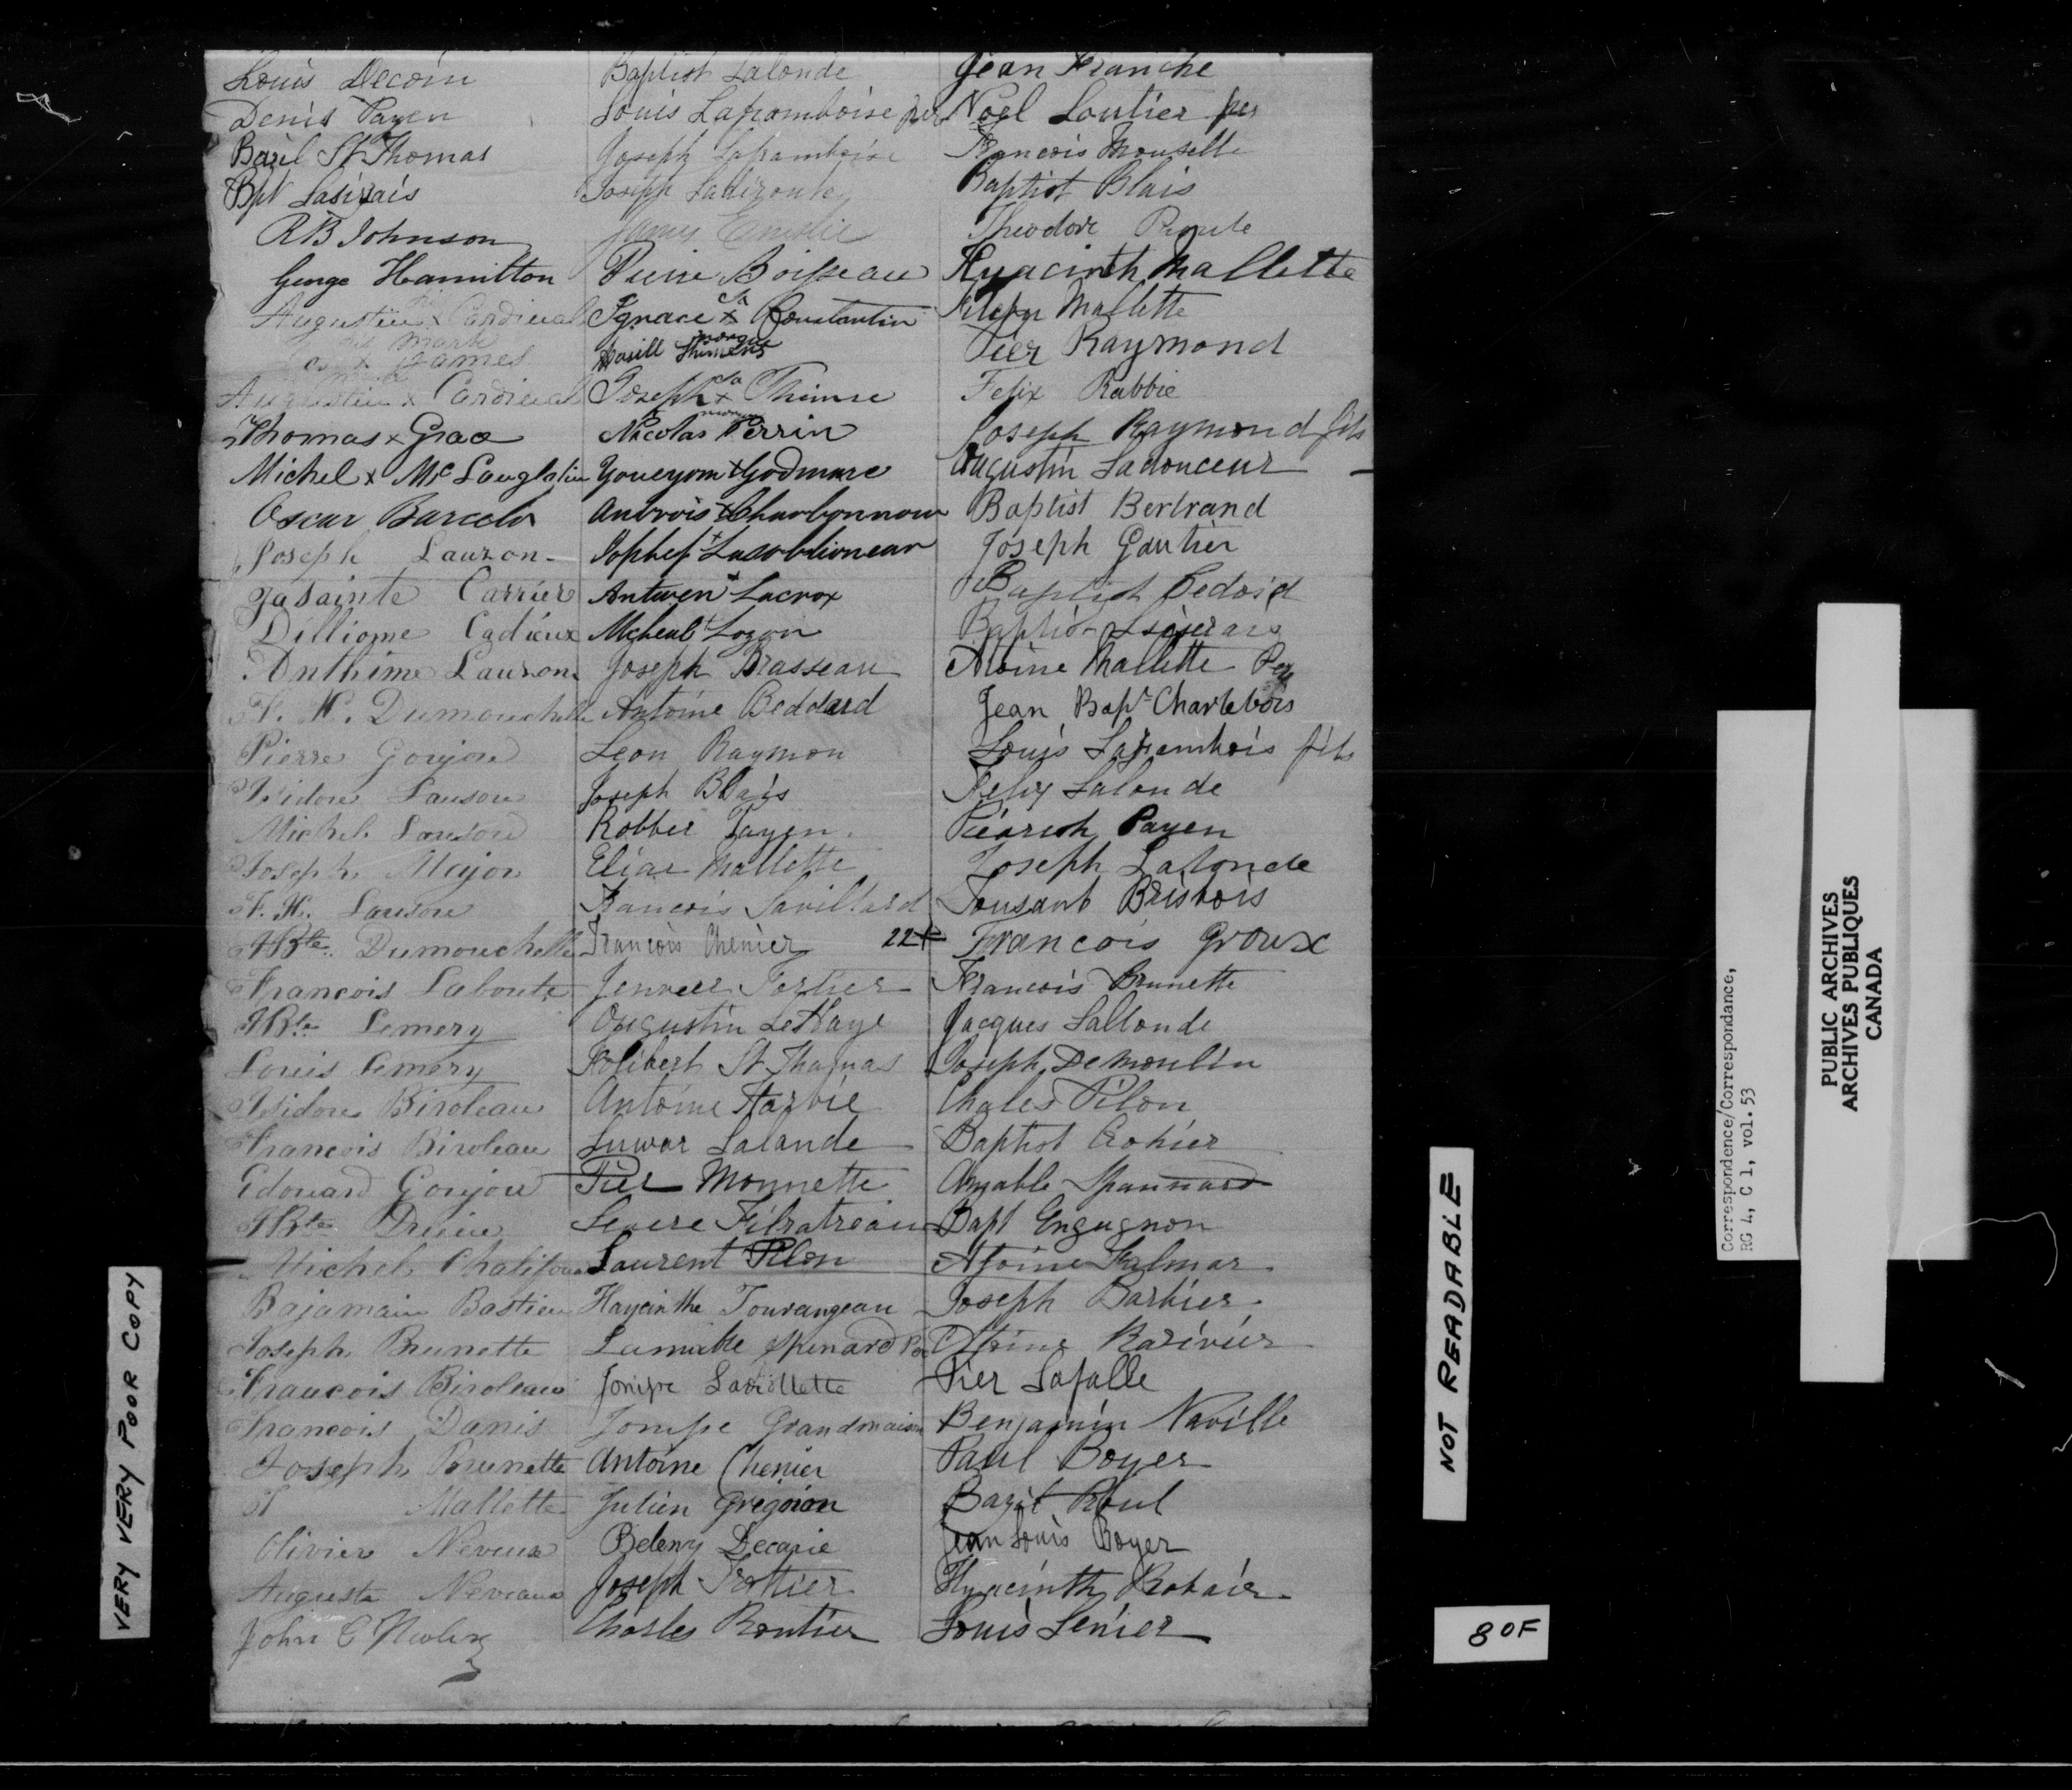 Louis Decoin
Denis Payen
Bazil St Thomas
Bpt Lasisais
RB Johnson
George Hamilton
Augustin x Cardinal
his mark
x James
Augustin x Cardinal
Thomas x Grace
Michel x Mc Laughlin
Oscar Barcelo
Joseph Lauzon
Jasainte Carrier
Dilliome Cadieux
Anthime Lauzon
F. X. Dumouchelle
Pierre Goujon
Isidore Lauson
Michel Lauson
Joseph Major
F. X. Lauson
JBte Dumouchelle
François Labonte
JBte Lemery
Louis Lemery
Isidore Biroleau
François Biroleau
Edouard Goujou
JBte
Michel Chalifoux
Bajamain Bastien
Joseph Brunette
Francois Biroleau
François Danis
Joseph Brunette
Mallette
Olivier Neveux
Auguste Neveaux
John C
Baptist Lalonde
Louis Laframboise per
Joseph Laframboise
Joseph Ladiroute
James
Pierre Boisseau
Ignace x Constantin
sa
Joseph x Thimse
Nicolas Perrin
Youeyom x Godmare
Anbrois x Charbonnow
Antwen x Lacrox
Micheal + Lozon
Joseph Brasseau
Antoine Beddard
Leon Raymon
Joseph Blais
Robbee Payen
Eliae Mallette
Francois Savillard
François Chenier 22+
Fortier
Augustin LeHaye
Folibert St Thomas
Antoine Harvie
Luwar Lalande
Pier Monnette
Severe Filiatreau
Laurent Pilon
Haycinthe Tourangeau
Spenard
Jonipe Laviollette
Jonipe Grandmaison
Antoine Chenier
Julien Grigoion
Beleny Decarie
Joseph Trottier
Charles Routier
Jean Franche
Noel Loutier per
Francois Mouselle
Baptist Blais
Theodore Proule
Hyacinth Mallette
Mallette
Pier Raymond
Felix Rabbie
Joseph Raymond fils
Augustin Ladouceur
Baptist Bertrand
Joseph Gautier
Baptist
Baptis
Atoine Mallette Per
Jean Bapt Charlebois
Louis Laframbois fils
Felix Lalonde
Payen
Joseph Lalonde
Tousant Brisbois
Francois Groux
Francois Brunette
Jacques Lallonde
Joseph Demoulin
Chales Pilon
Baptist Crohier
Amable Spannard
Bapt Engugnon
Atoine Falmar
Joseph Barbier
Atoine Rarivier
Pier Lafalle
Benjamin Naville
Paul Boyer
Bazil Roul
Jean Louis Boyer
Hyacinth
Louis Lenier
VERY VERY POOR COPY
NOT READABLE
80F
Correspondence/Correspondance,
RG 4, C 1, vol.53
PUBLIC ARCHIVES
ARCHIVES PUBLIQUES
CANADA